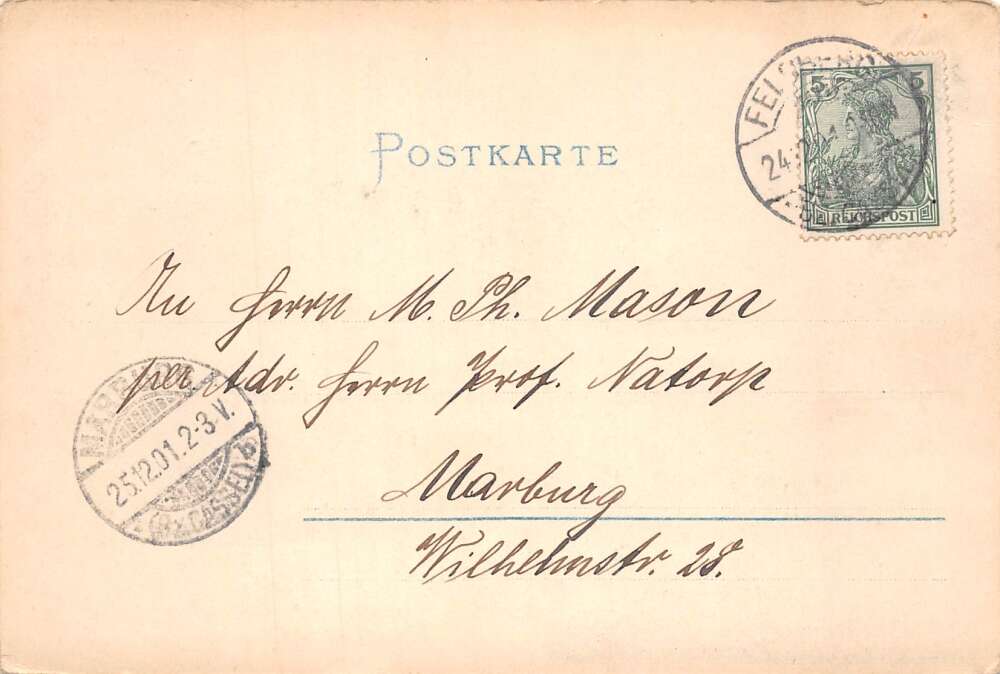 POSTKARTE
5 5
REICHSPOST
24.12.
An Herrn M. Ph. Mason
per. Adr. Herrn Prof. Natorp
Marburg
Wilhelmstr. 28.
MARBURG
25.12.01.2-3V.
(Bz.CASSEL) b